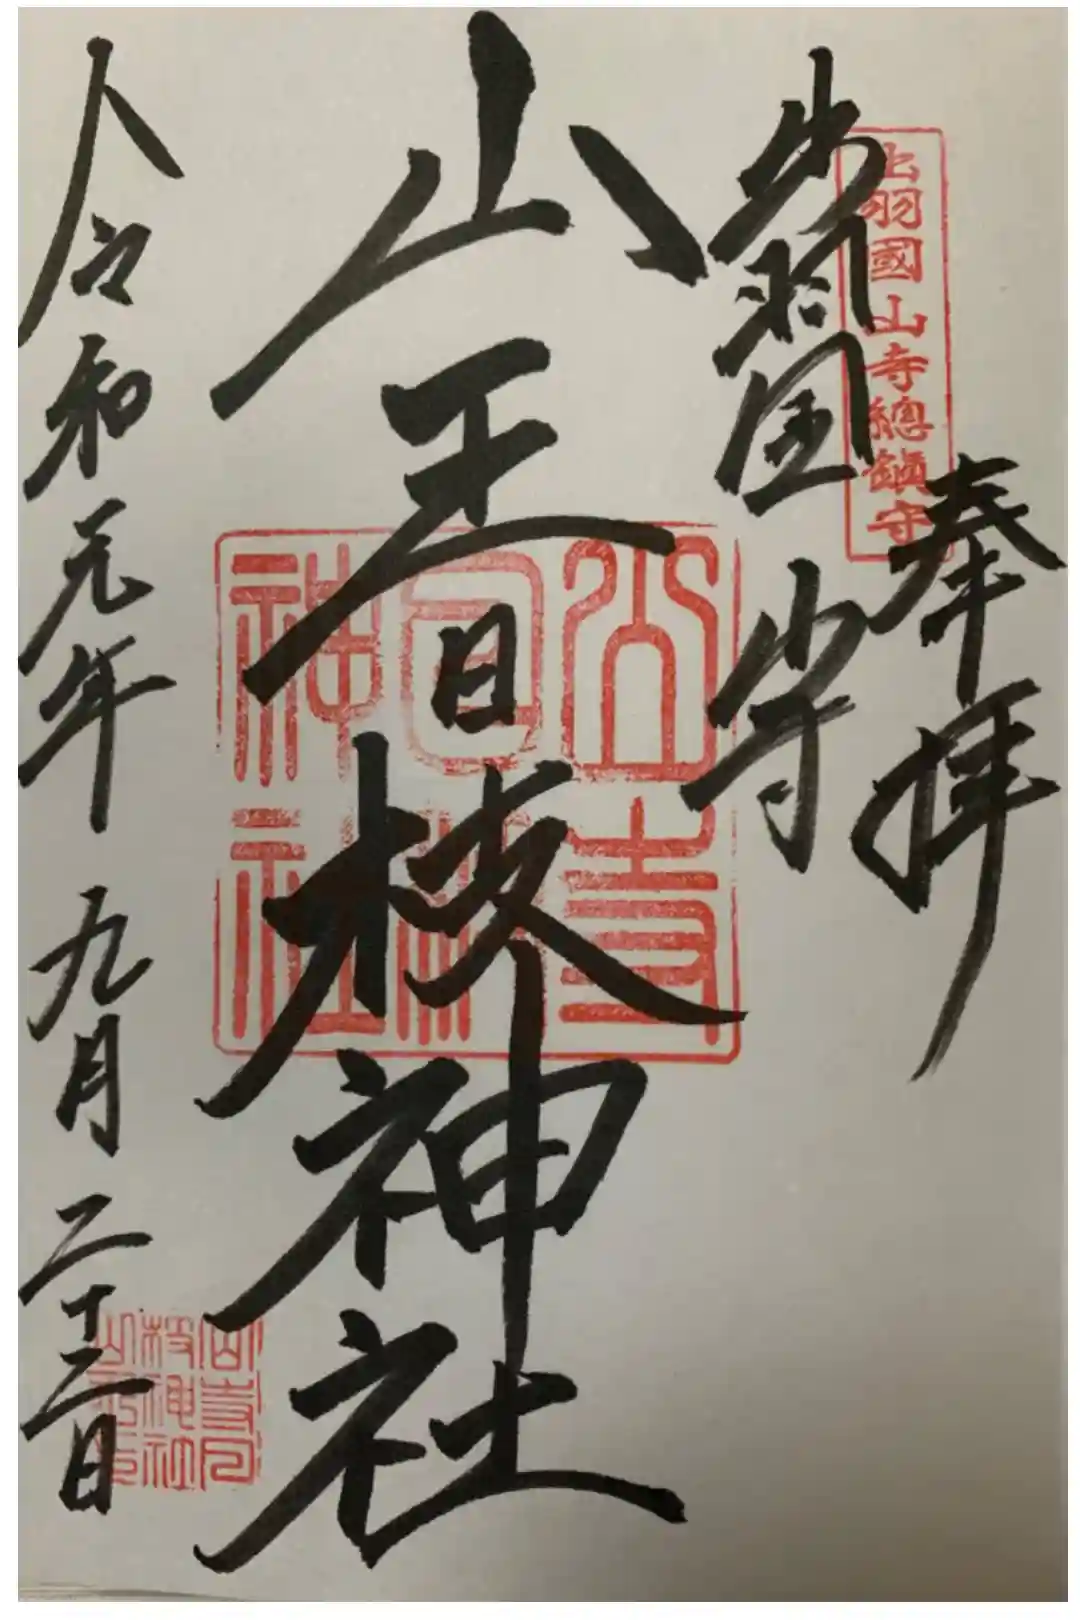 出羽國山寺總鎮守
奉拝
出羽国
山寺
山王
日枝神社
山寺
日枝
神社
令和元年九月二十二日